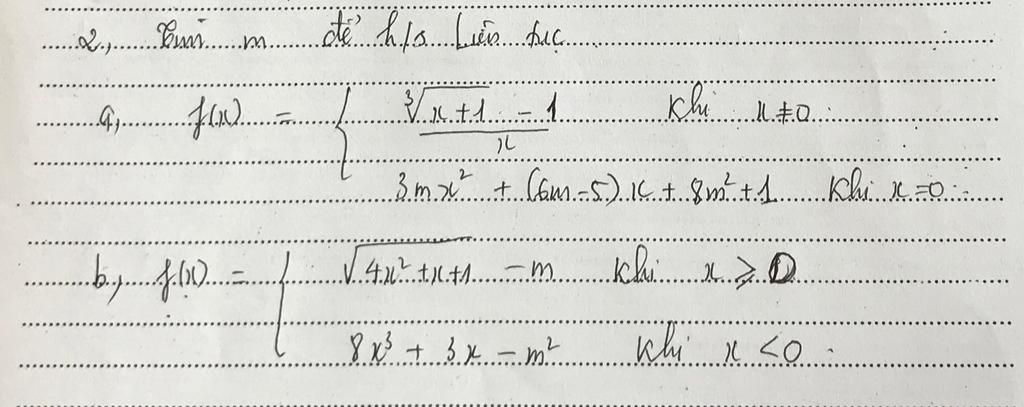 2, Tìm m để h/s Liên tục
a, f(x) = { (∛(x+1) - 1)/x khi x ≠ 0
3mx² + (6m-5)x + 8m² + 1 khi x = 0
b, f(x) = { √(4x² + x + 1) - m khi x ≥ 0
8x³ + 3x - m² khi x < 0